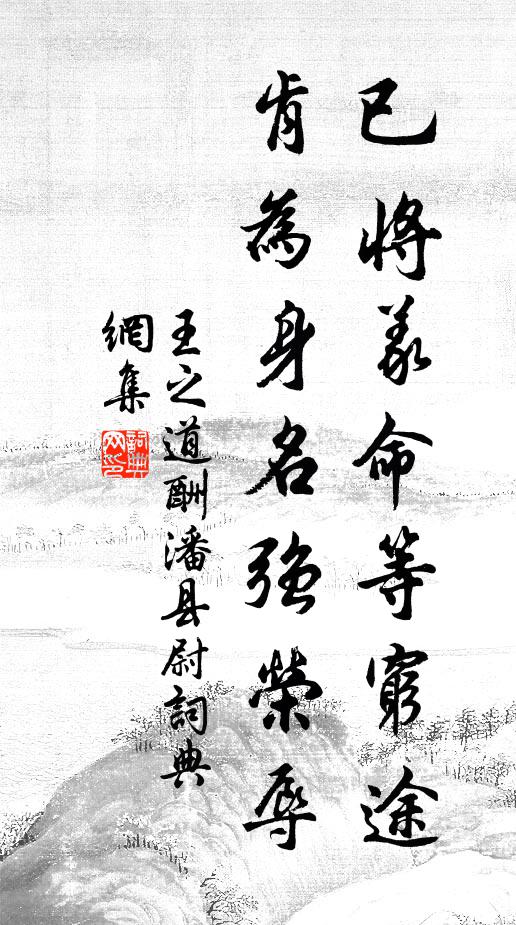 已將義命等窮途
肯為身名強榮辱
王之道酬潘县尉詞典
網集
詞典
网印